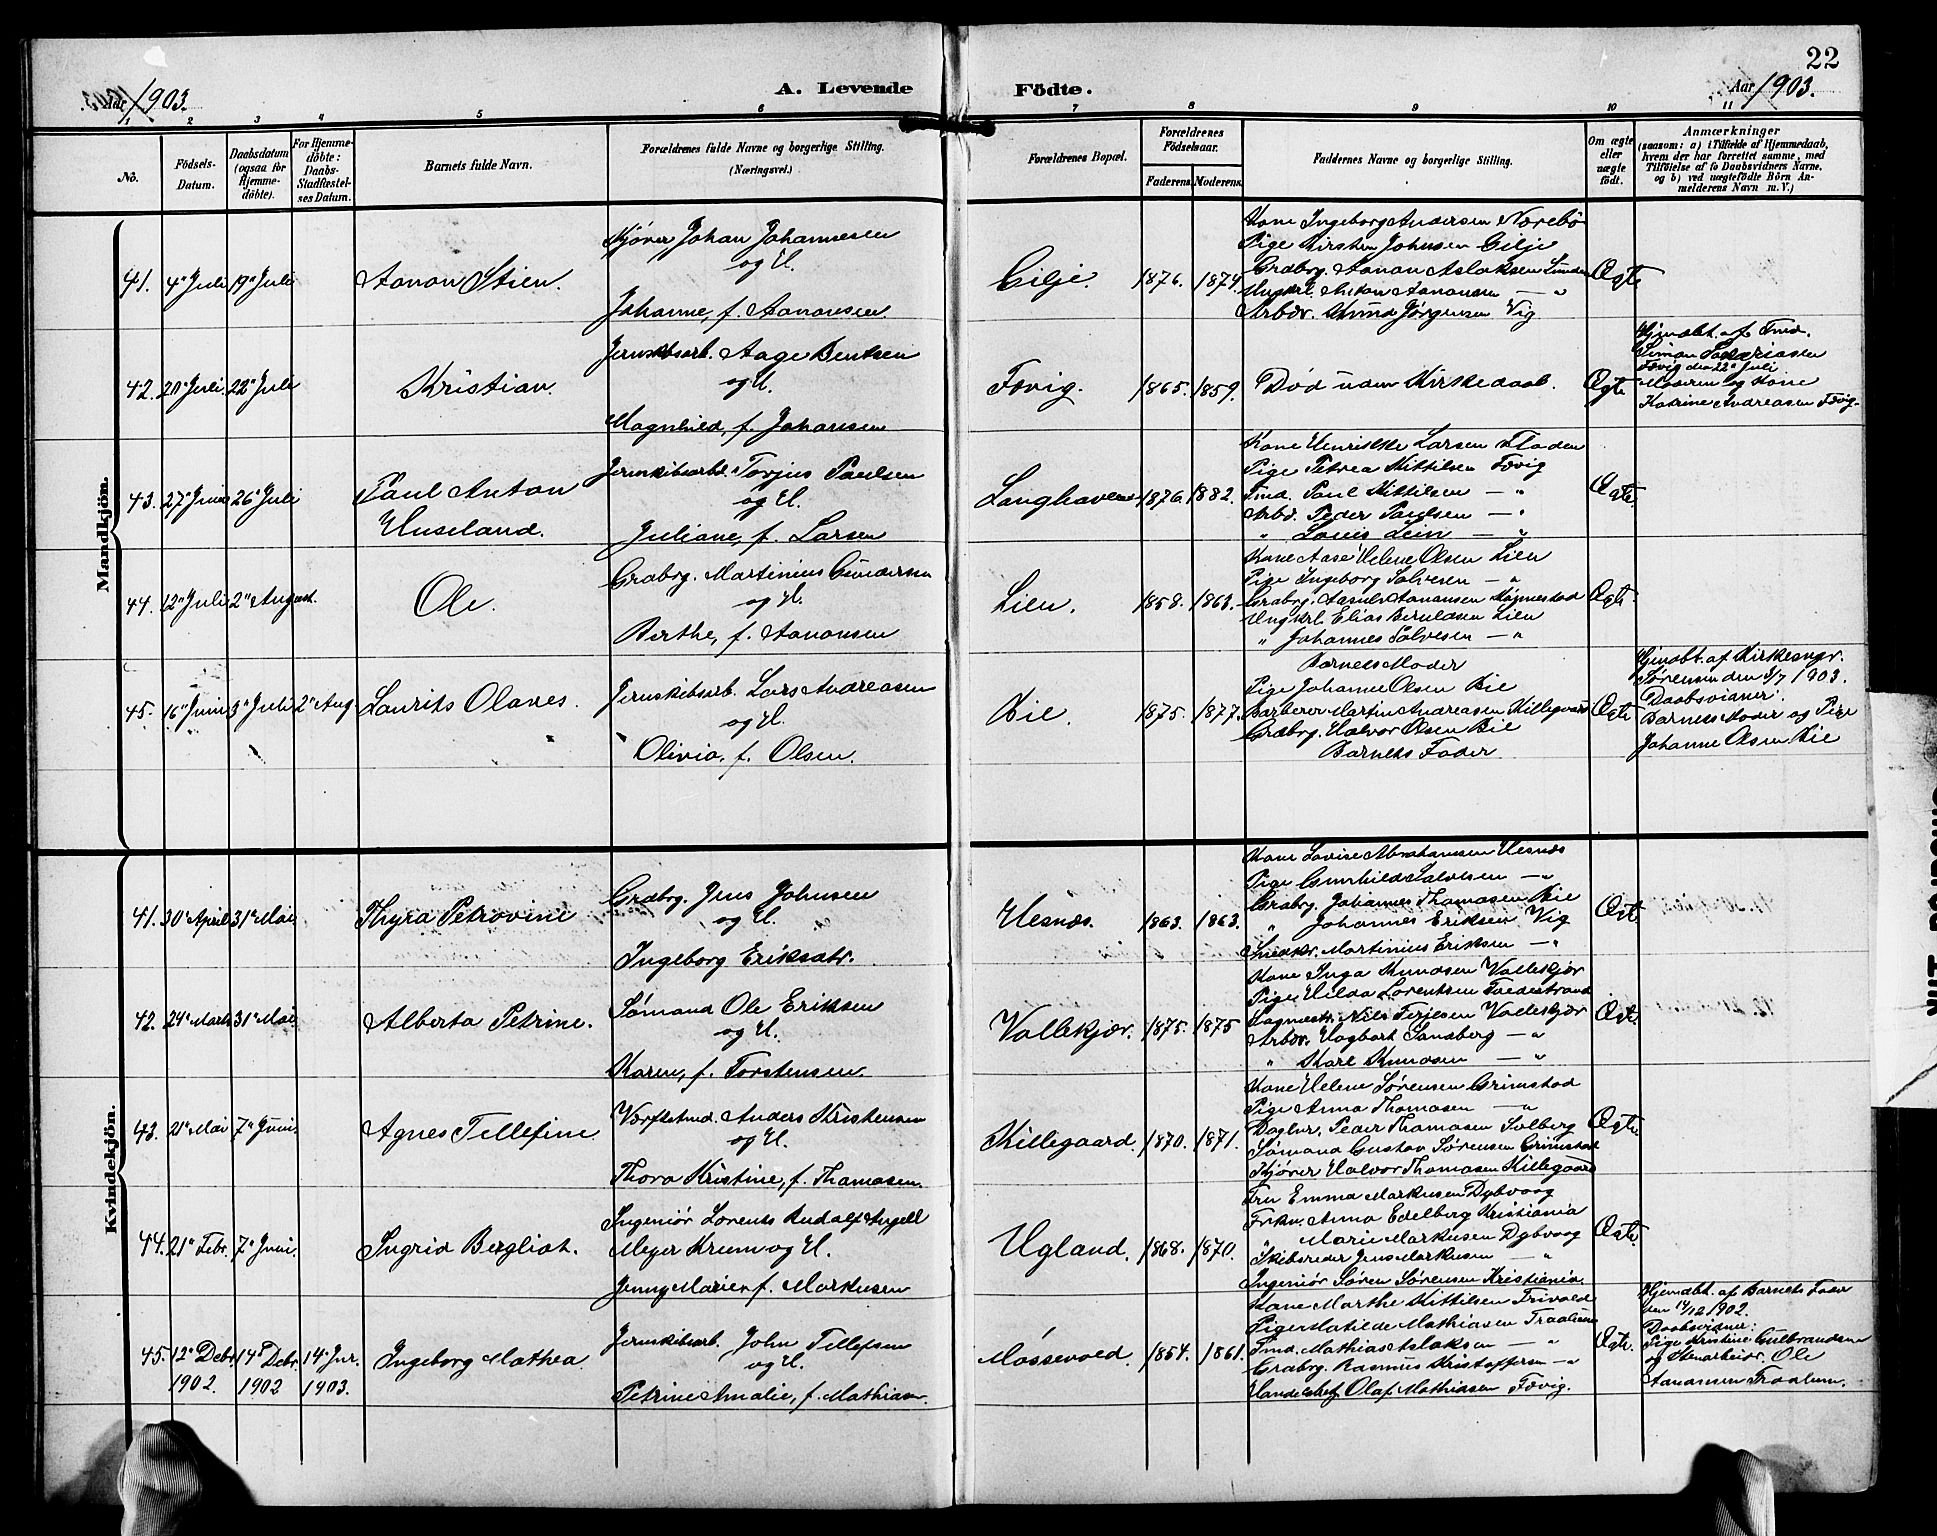 22
Aar 1903.
A. Levende Födte.
Aar 1903.
1 2 3 4 5 6 7 8 9 10 11
No.
Födsels-Datum.
Daabsdatum (ogsaa for Hjemme-döbte).
For Hjemme-döbte: Daabs-Stadfæstel-ses Datum.
Barnets fulde Navn.
Forældrenes fulde Navne og borgerlige Stilling. (Næringsvei.)
Forældrenes Bopæl.
Forældrenes Födselsaar.
Faderens. Moderens.
Faddernes Navne og borgerlige Stilling.
Om ægte eller uægte födt.
Anmærkninger
(saasom: a) i Tilfælde af Hjemmedaab, hvem der har forrettet samme, med Tilföielse af to Daabsvidners Navne, og b) ved uægtefödte Börn An-melderens Navn m. V.)
Mandkjön.
41. 4de Juli 19de Juli
Aanon Stien.
Kjører Johan Johannesen
og H.
Johanne, f. Aanonsen.
Cilje. 1876. 1874.
Kone Ingeborg Andersen Nærebø
Pige Kirsten Johnsen Cilje
Grdbrg. Aanon Aslaksen Lunden
Ungkrl. Anton Aanonsen — "
Arbdr. Knud Jørgensen Vig
Ægte
42. 20de Juli 22de Juli
Kristian.
Jernskibsarb. Aage Bentsen
og H.
Magnhild, f. Johansen
Fævig. 1865. 1859.
Død uden Kirkedaab.
Ægte
Hjmdbt. af Tmd.
Simon Zakariasen
Fævig den 22de Juli
Moderen og Kone
Katrine Andreasen Fævig.
43. 27de Juni 26de Juli
Paul Anton
Huseland.
Jernskibsarbd. Torjus Paulsen
og H.
Juliane, f. Larsen
Langhaven 1876. 1882.
Kone Henrikke Larsen Floden
Pige Petrea Kittilsen Fævig
Tmd. Paul Kittilsen — "
Arbd. Peder Paulsen — "
" Louis Lein — "
Ægte.
44. 12te Juli 2den August.
Ole.
Grdbrg. Martinius Gundersen
og H.
Berthe, f. Aanonsen
Lien. 1858. 1863.
Kone Aase Helene Olsen Lien
Pige Ingeborg Salvesen — "
Grdbrg. Aasulv Aanonsen Høgnestad
Ungkrl. Elias Berntsen Lien
" Johannes Salvesen — "
Ægte.
45. 16de Juni 3die Juli 2den Aug
Laurits Olaves.
Jernskibsarb. Lars Andreasen
og H.
Olivia, f. Olsen.
Bie. 1875. 1877.
Barnets Moder
Pige Johanne Olsen Bie
Barberer Martin Andreasen Killegaard
Grdbrg. Halvor Olsen Bie
Barnets Fader
Ægte
Hjmdbt. af Kirkesngr.
Sørensen den 3/7 1903.
Daabsvidner:
Barnets Moder og Pige
Johanne Olsen Bie
Kvindekjön.
41. 30te April 31te Mai
Thyra Petrovine
Grdbrg. Jens Johnsen
og H.
Ingeborg Eriksdtr.
Hesnæs. 1863. 1863.
Kone Lovise Abrahamsen Hesnæs
Pige Gunhild Salvesen — "
Grdbrg. Johannes Thomasen Bie
" Johannes Eriksen Vig
Snedkr. Martinius Eriksen — "
Ægt.
42. 24de Marts 31te Mai
Alberta Petrine.
Sømand Ole Eriksen
og H.
Karen, f. Torstensen.
Vallekjær. 1875. 1875
Kone Inga Knudsen Vallekjær
Pige Hilda Lorentsen Tvedestrand
Sagmestr. Nils Terjesen Vallekjær
Arbdr. Hagbart Sandberg — "
" Karl Knudsen — "
Ægt.
43. 21de Mai 7de Juni.
Agnes Tellefine.
Værftsmd. Anders Kristensen
og H.
Thora Kristine, f. Thomasen.
Killegaard. 1870. 1871.
Kone Helene Sørensen Grimstad
Pige Anna Thomasen — "
Daglnr. Peder Thomasen Solberg
Sømand Gustav Sørensen Grimstad
Kjører Halvor Thomasen Killegaard
Ægte
44. 21de Febr. 7de Juni.
Ingrid Bergliot.
Ingeniør Lorents Rudolf Angell
Meyer Krum og H.
Jenny Marie, f. Markusen
Ugland. 1868. 1870.
Fru Emma Markusen Dybvaag
Frkn. Anna Edelberg Kristiania
" Marie Markusen Dybvaag
Skibsreder Jens Markusen — "
Ingeniør Søren Sørensen Kristiania.
Ægte.
45. 12te Debr. 1902. 14de Debr. 1902 14de Jnr. 1903.
Ingeborg Mathea.
Jernskibsarb. John Tellefsen
og H.
Petrine Amalie, f. Mathiasen.
Mossevold. 1854. 1861.
Kone Marthe Kittilsen Trivold
Pige Matilde Mathiasen Traalum
Tmd. Mathias Aslaksen — "
Grdbrg. Rasmus Kristoffersen — "
Handelsbtj. Olaf Mathiasen Fævig.
Ægte.
Hjemdbt. af Barnets Fader
den 14/12 1902.
Daabsvidner:
Pige Kristine Gulbrandsen
og Stenarbeidr. Ole
Aanonsen Traalum.